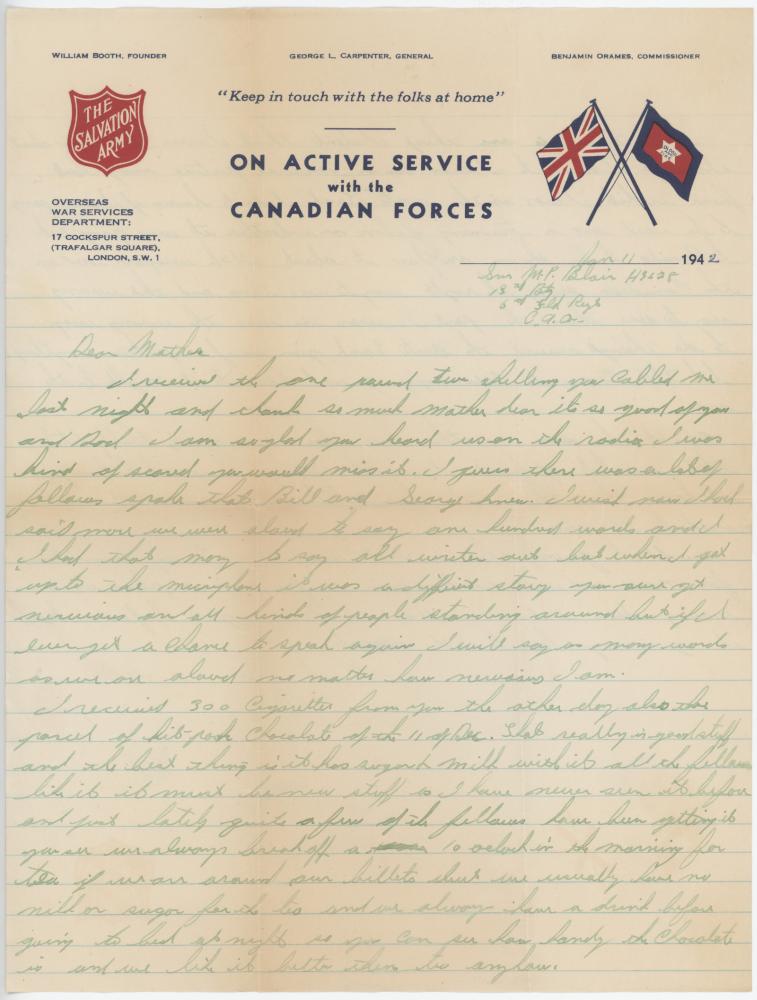 WILLIAM BOOTH, FOUNDER
GEORGE L. CARPENTER, GENERAL
BENJAMIN ORAMES, COMMISSIONER
THE
SALVATION
ARMY
"Keep in touch with the folks at home"
ON ACTIVE SERVICE
with the
CANADIAN FORCES
OVERSEAS
WAR SERVICES
DEPARTMENT:
17 COCKSPUR STREET,
(TRAFALGAR SQUARE),
LONDON, S.W. 1
Jan 11 1942
Gnr M.P. Blair H3628
13th Bty
Fld Regt
C.A.O.
Dear Mother
I received the one pound two shilling you Cabled me
last night and thank so much Mother dear its so good of you
and Dad I am so glad you heard us on the radio I was
kind of scared you would miss it. I guess there was a lot of
fellows spoke that Bill and George knew. I wish now I had
said more we were aloud to say one hundred words and I
I had that many to say all writen out but when I got
up to the micriphone it was a diffrent story you sure get
nervious and all kinds of people standing around but if I
ever get a chance to speak again I will say as many words
as we are aloud no matter how nervious I am.
I received 300 Cigarettes from you the other day also the
parcel of kit-pack Chocolate of the 11 of Dec. That really is good stuff
and the best thing is it has sugar & milk with it all the fellows
like it it must be new stuff as I have never seen it before
and just lately quite a few of the fellows have been getting it
you see we always break off a 10 oclock in the morning for
tea if we are around our billets but we usually have no
milk or sugar for the tea and we always have a drink before
going to bed at night so you can see how handy the Chocolate
is and we like it better then tea anyhow.